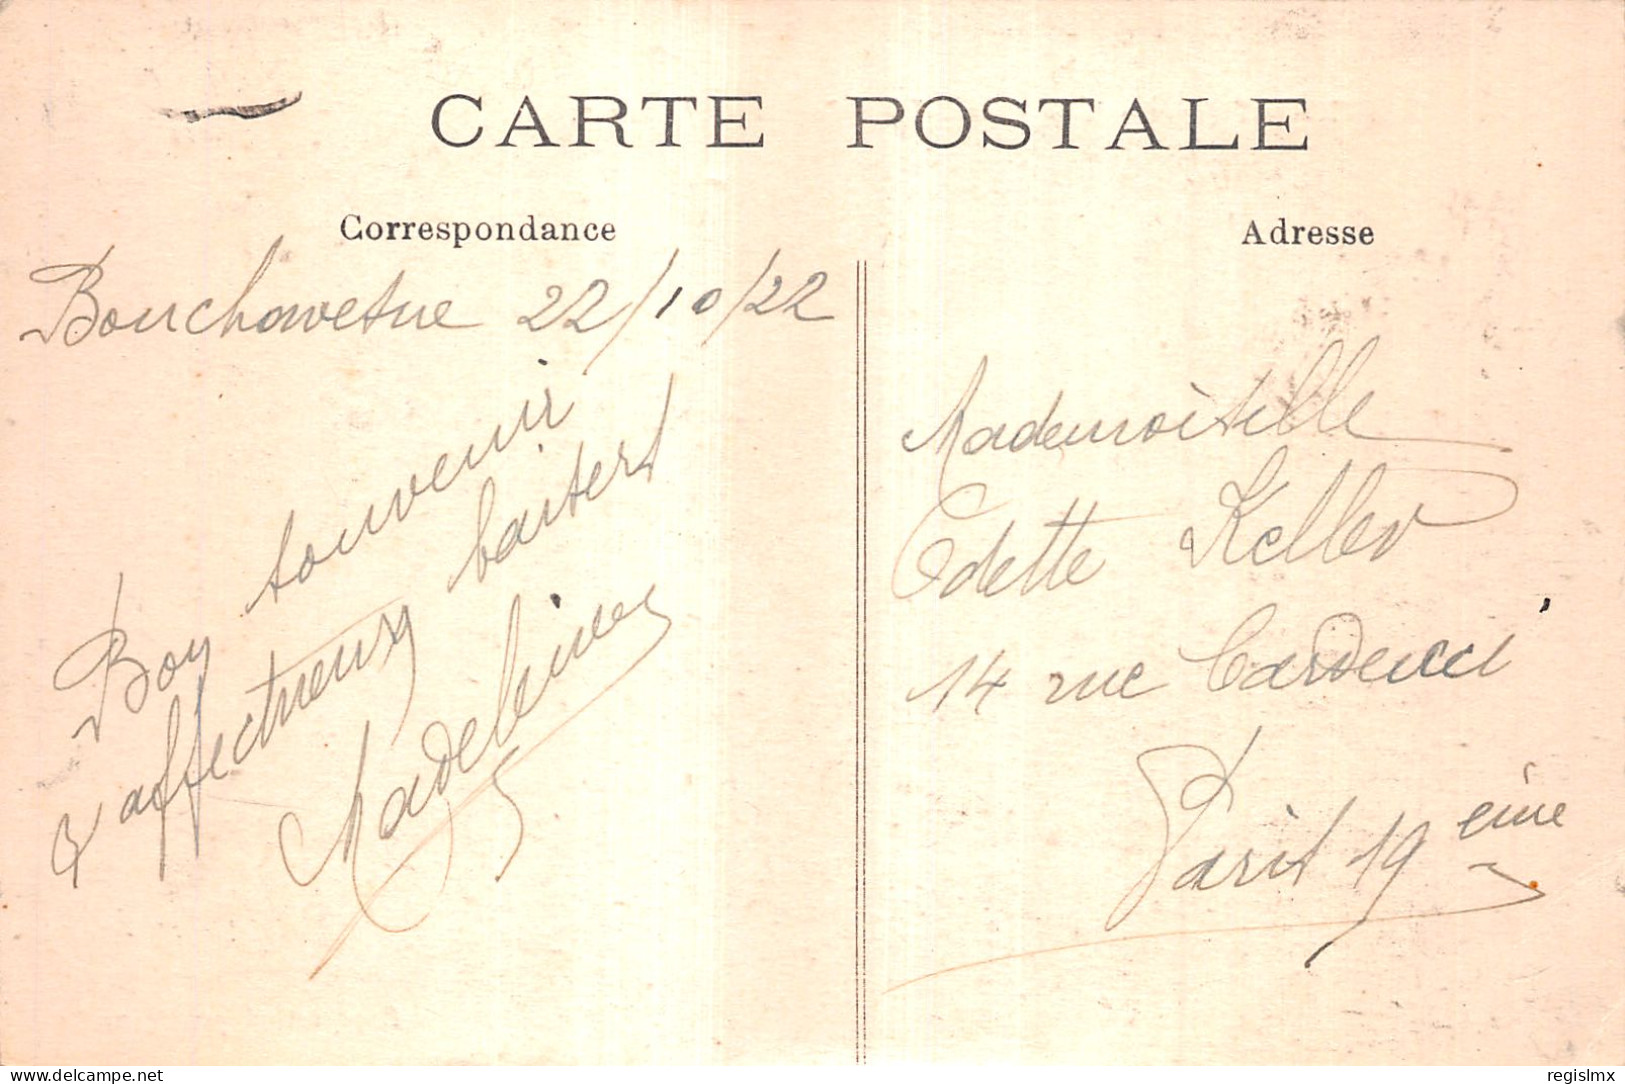 CARTE POSTALE
Correspondance
Bouchavesne 22/10/22
Bon souvenir
& affectueux baisers
Madeleine
Adresse
Mademoiselle
Odette Keller
14 rue Carducci
Paris 19 eme
delcampe.net
regislmx